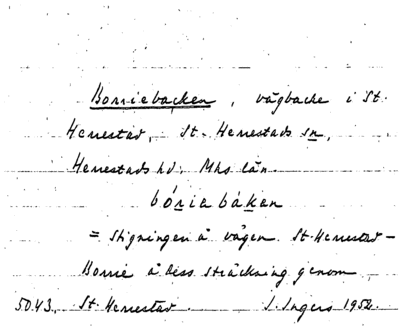 Borriebacken, vägbacke i St.
Herrestad, St. Herrestads sn,
Herrestads hd, Mhs län.
bóriabákan
= stigningen å vägen St. Herrestad –
Borrie å dess sträckning genom
50.43. St. Herrestad. I. Ingers 1952.